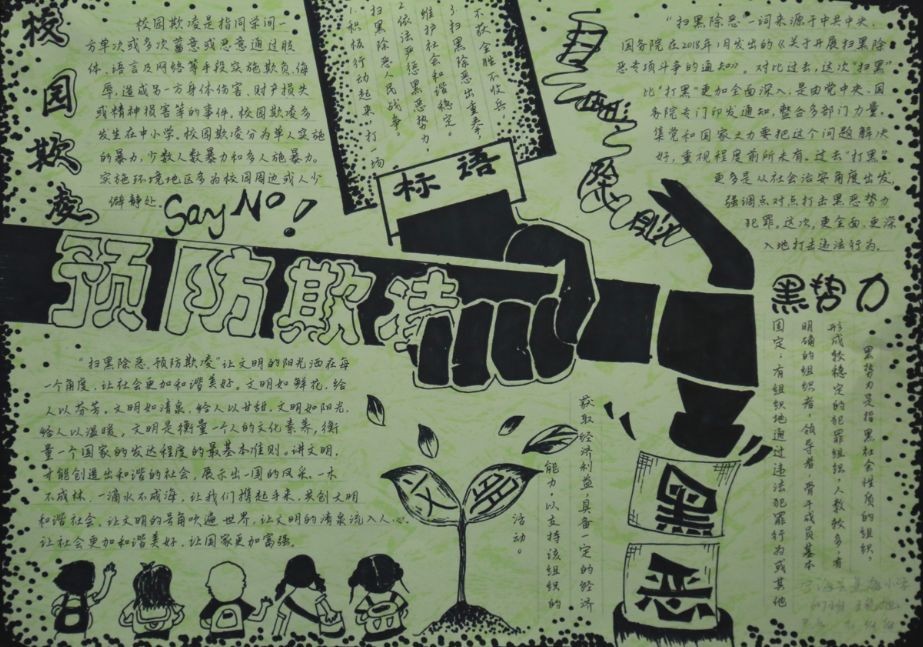 校园欺凌
校园欺凌是指同学间一
方单次或多次蓄意或恶意通过肢
体、语言及网络等手段实施欺负、侮
辱，造成另一方身体伤害、财产损失
或精神损害等的事件。校园欺凌多
发生在中小学。校园欺凌分为单人实施
的暴力，少数人数暴力和多人施暴力。
实施环境地区多为校园周边或人少
僻静处。
Say No!
标语
1.积极行动起来，打一场
扫黑除恶人民战争。
2.依法严惩黑恶势力，
维护社会和谐稳定
3.扫黑除恶出重拳，
不获全胜不收兵
扫黑除恶
“扫黑除恶”一词来源于中共中央、
国务院在2018年1月发出的《关于开展扫黑除
恶专项斗争的通知》。对比过去，这次“扫黑”
比“打黑”更加全面深入，是由党中央、国
务院专门印发通知，整合多部门力量，
集党和国家之力要把这个问题解决
好，重视程度前所未有。过去“打黑”
更多是从社会治安角度出发，
强调点对点打击黑恶势力
犯罪。这次，更全面、更深
入地打击违法行为。
预防欺凌
“扫黑除恶，预防欺凌”让文明的阳光洒在每
一个角度，让社会更加和谐美好。文明如鲜花，给
人以芬芳。文明如清泉，给人以甘甜。文明如阳光，
给人以温暖。文明是衡量一个人的文化素养，衡
量一个国家的发达程度的最基本准则。讲文明，
才能创造出和谐的社会，展示出一国的风采。一木
不成林，一滴水不成海，让我们携起手来，共创文明
和谐社会。让文明的号角吹遍世界，让文明的清泉流入人心，
让社会更加和谐美好，让国家更加富强。
黑势力
黑势力是指黑社会性质的组织，
形成较稳定的犯罪组织，人数较多，有
明确的组织者、领导者，骨干成员基本
固定；有组织地通过违法犯罪行为或其他
获取经济利益，具备一定的经济
能力，以支持该组织的
活动。
文明
黑
恶